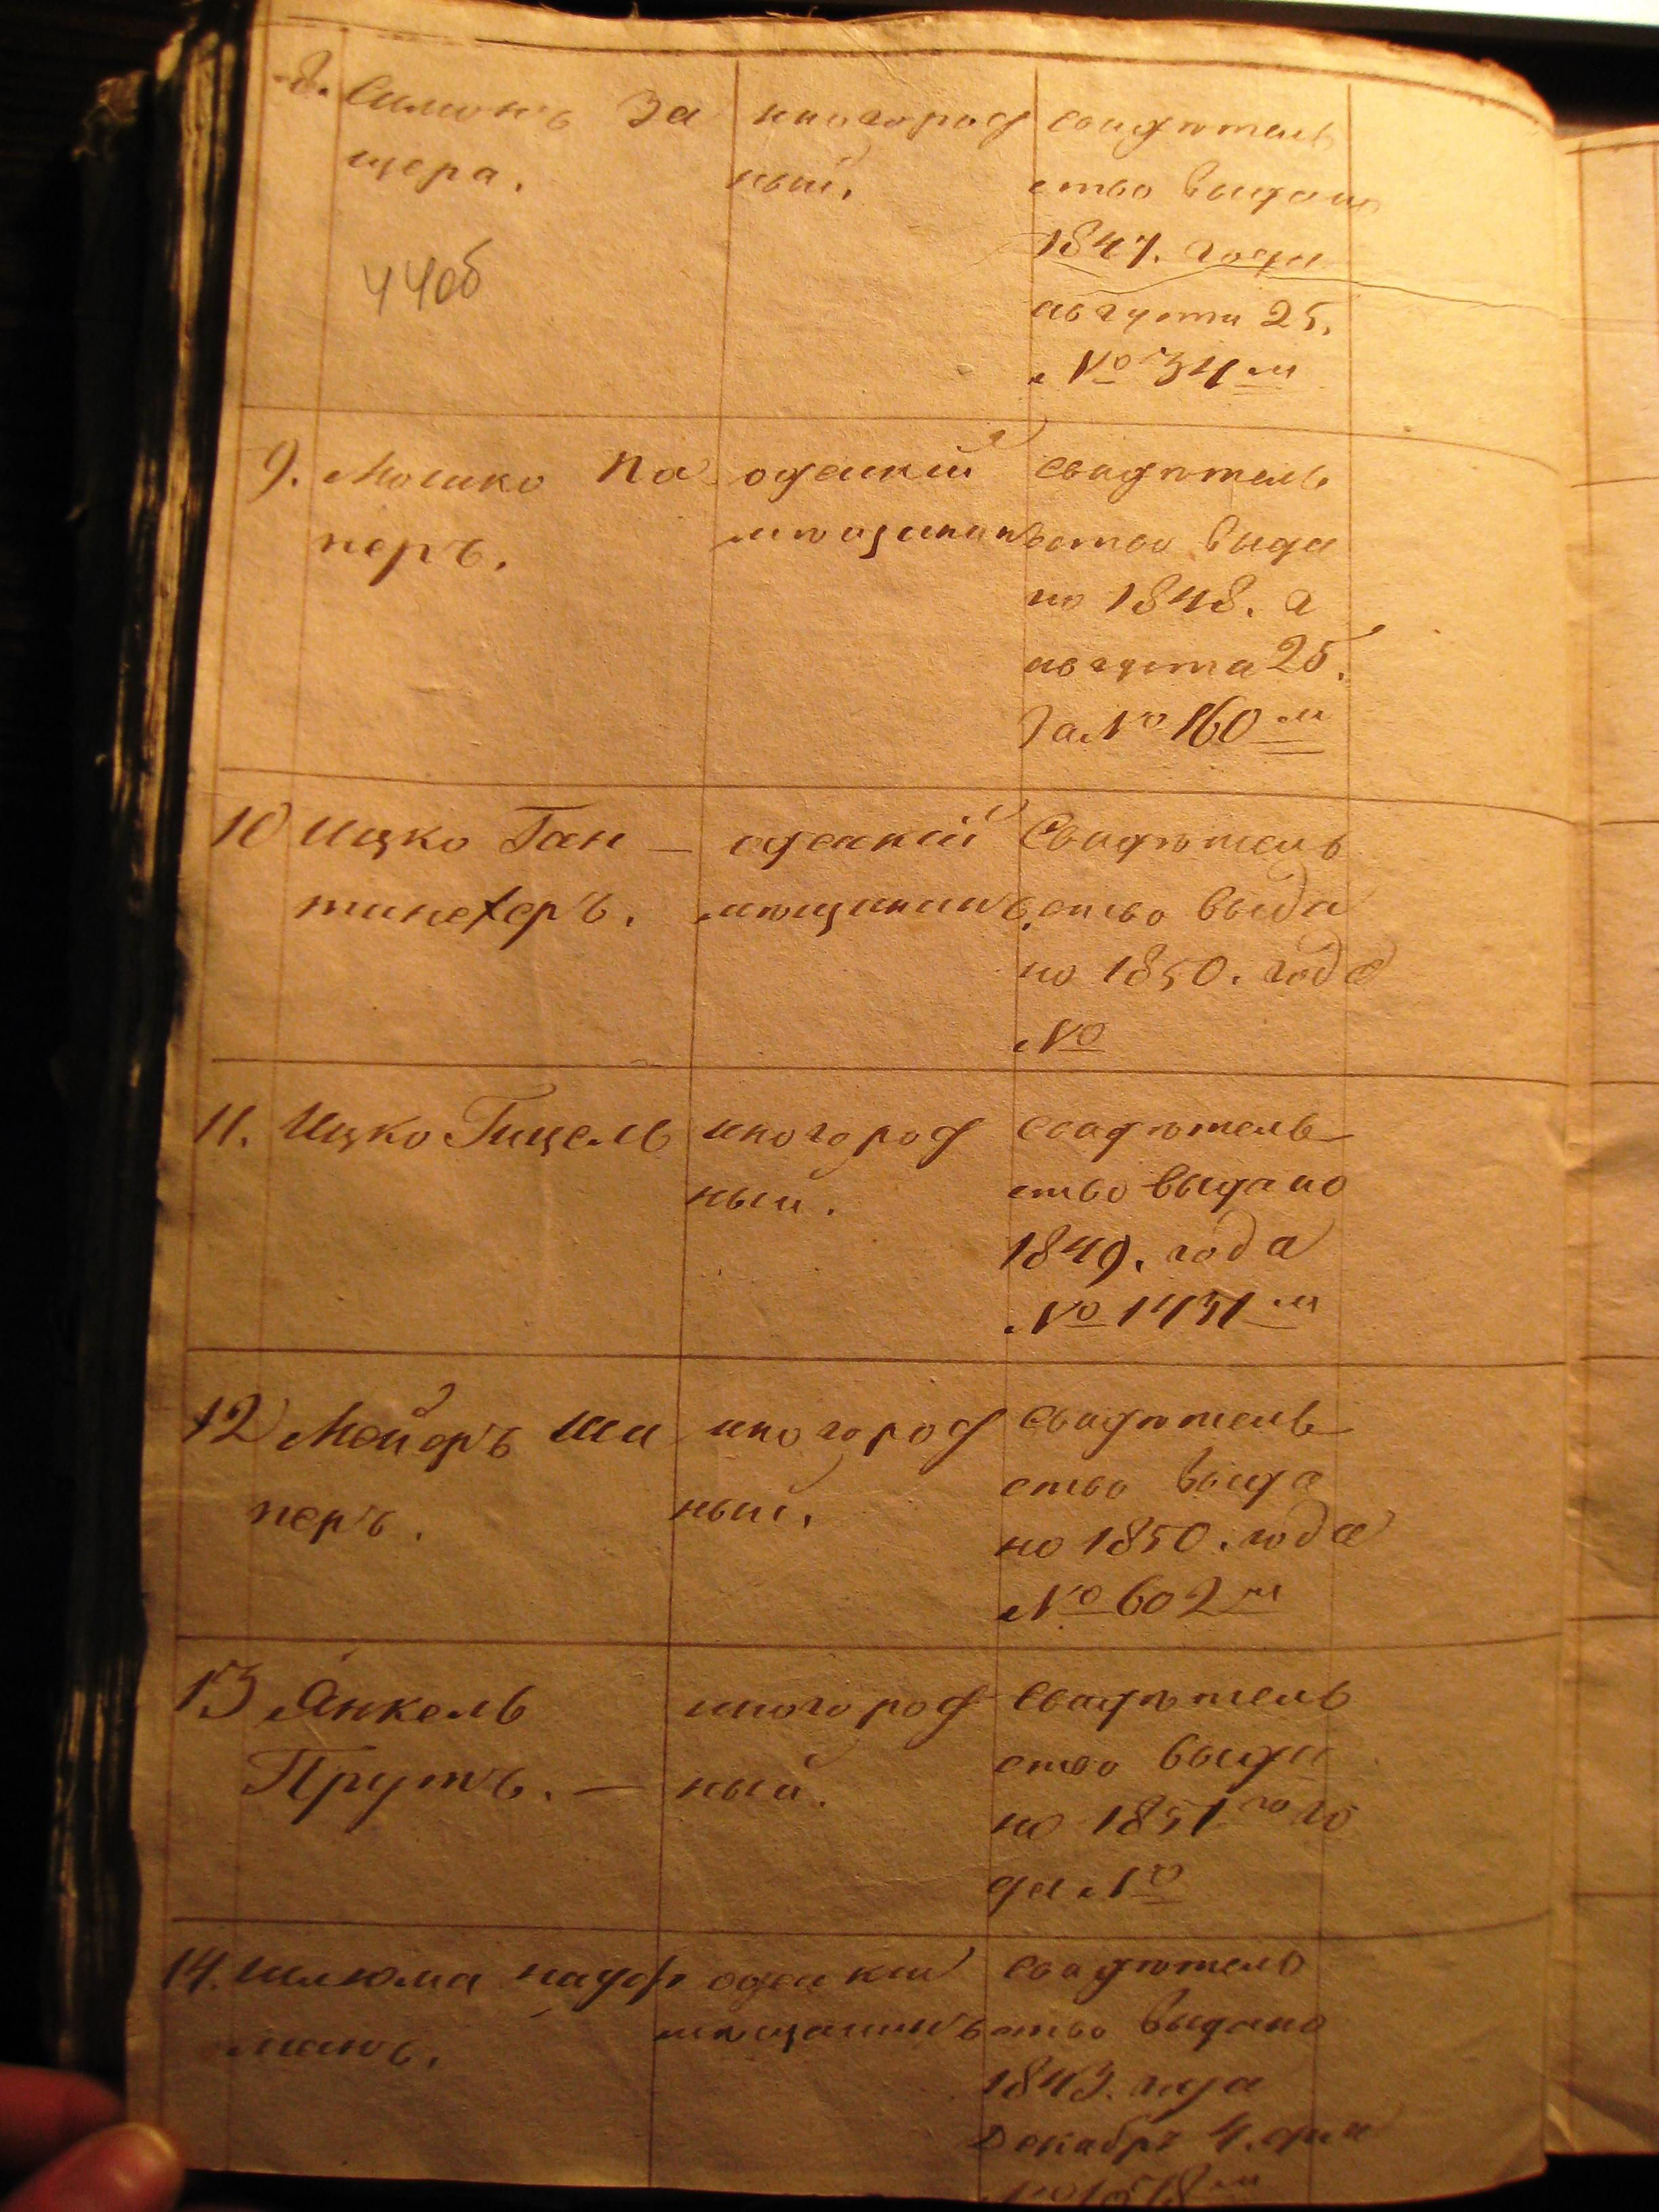 8. Симонъ За
щера.
иногород
ный.
свидѣтель
ство выдано
1847. года
августа 25.
№ 34м
44об
9. Мошко Па
перъ.
одескій
мѣщанинъ
свидѣтель
ство выда
но 1848. г
августа 25.
За № 160м
10 Ицко Ган —
тинехеръ.
одескій
мѣщанинъ
Свидѣтель
ство выда
но 1850. года
№
11. Ицко Гицель
иногород
ный.
свидѣтель
ство выдано
1849. года
№ 1431м
12 Мейоръ Ша
перъ.
иногород
ный.
Свидѣтель
ство выда
но 1850. года
№ 602м
13 Янкель
Прутъ. —
иногород
ный.
Свидѣтель
ство выда
но 1851го го
да №
14. Шлюма Науф
манъ.
одескій
мѣщанинъ
свидѣтель
ство выдано
1843. года
Декабря 4. дня